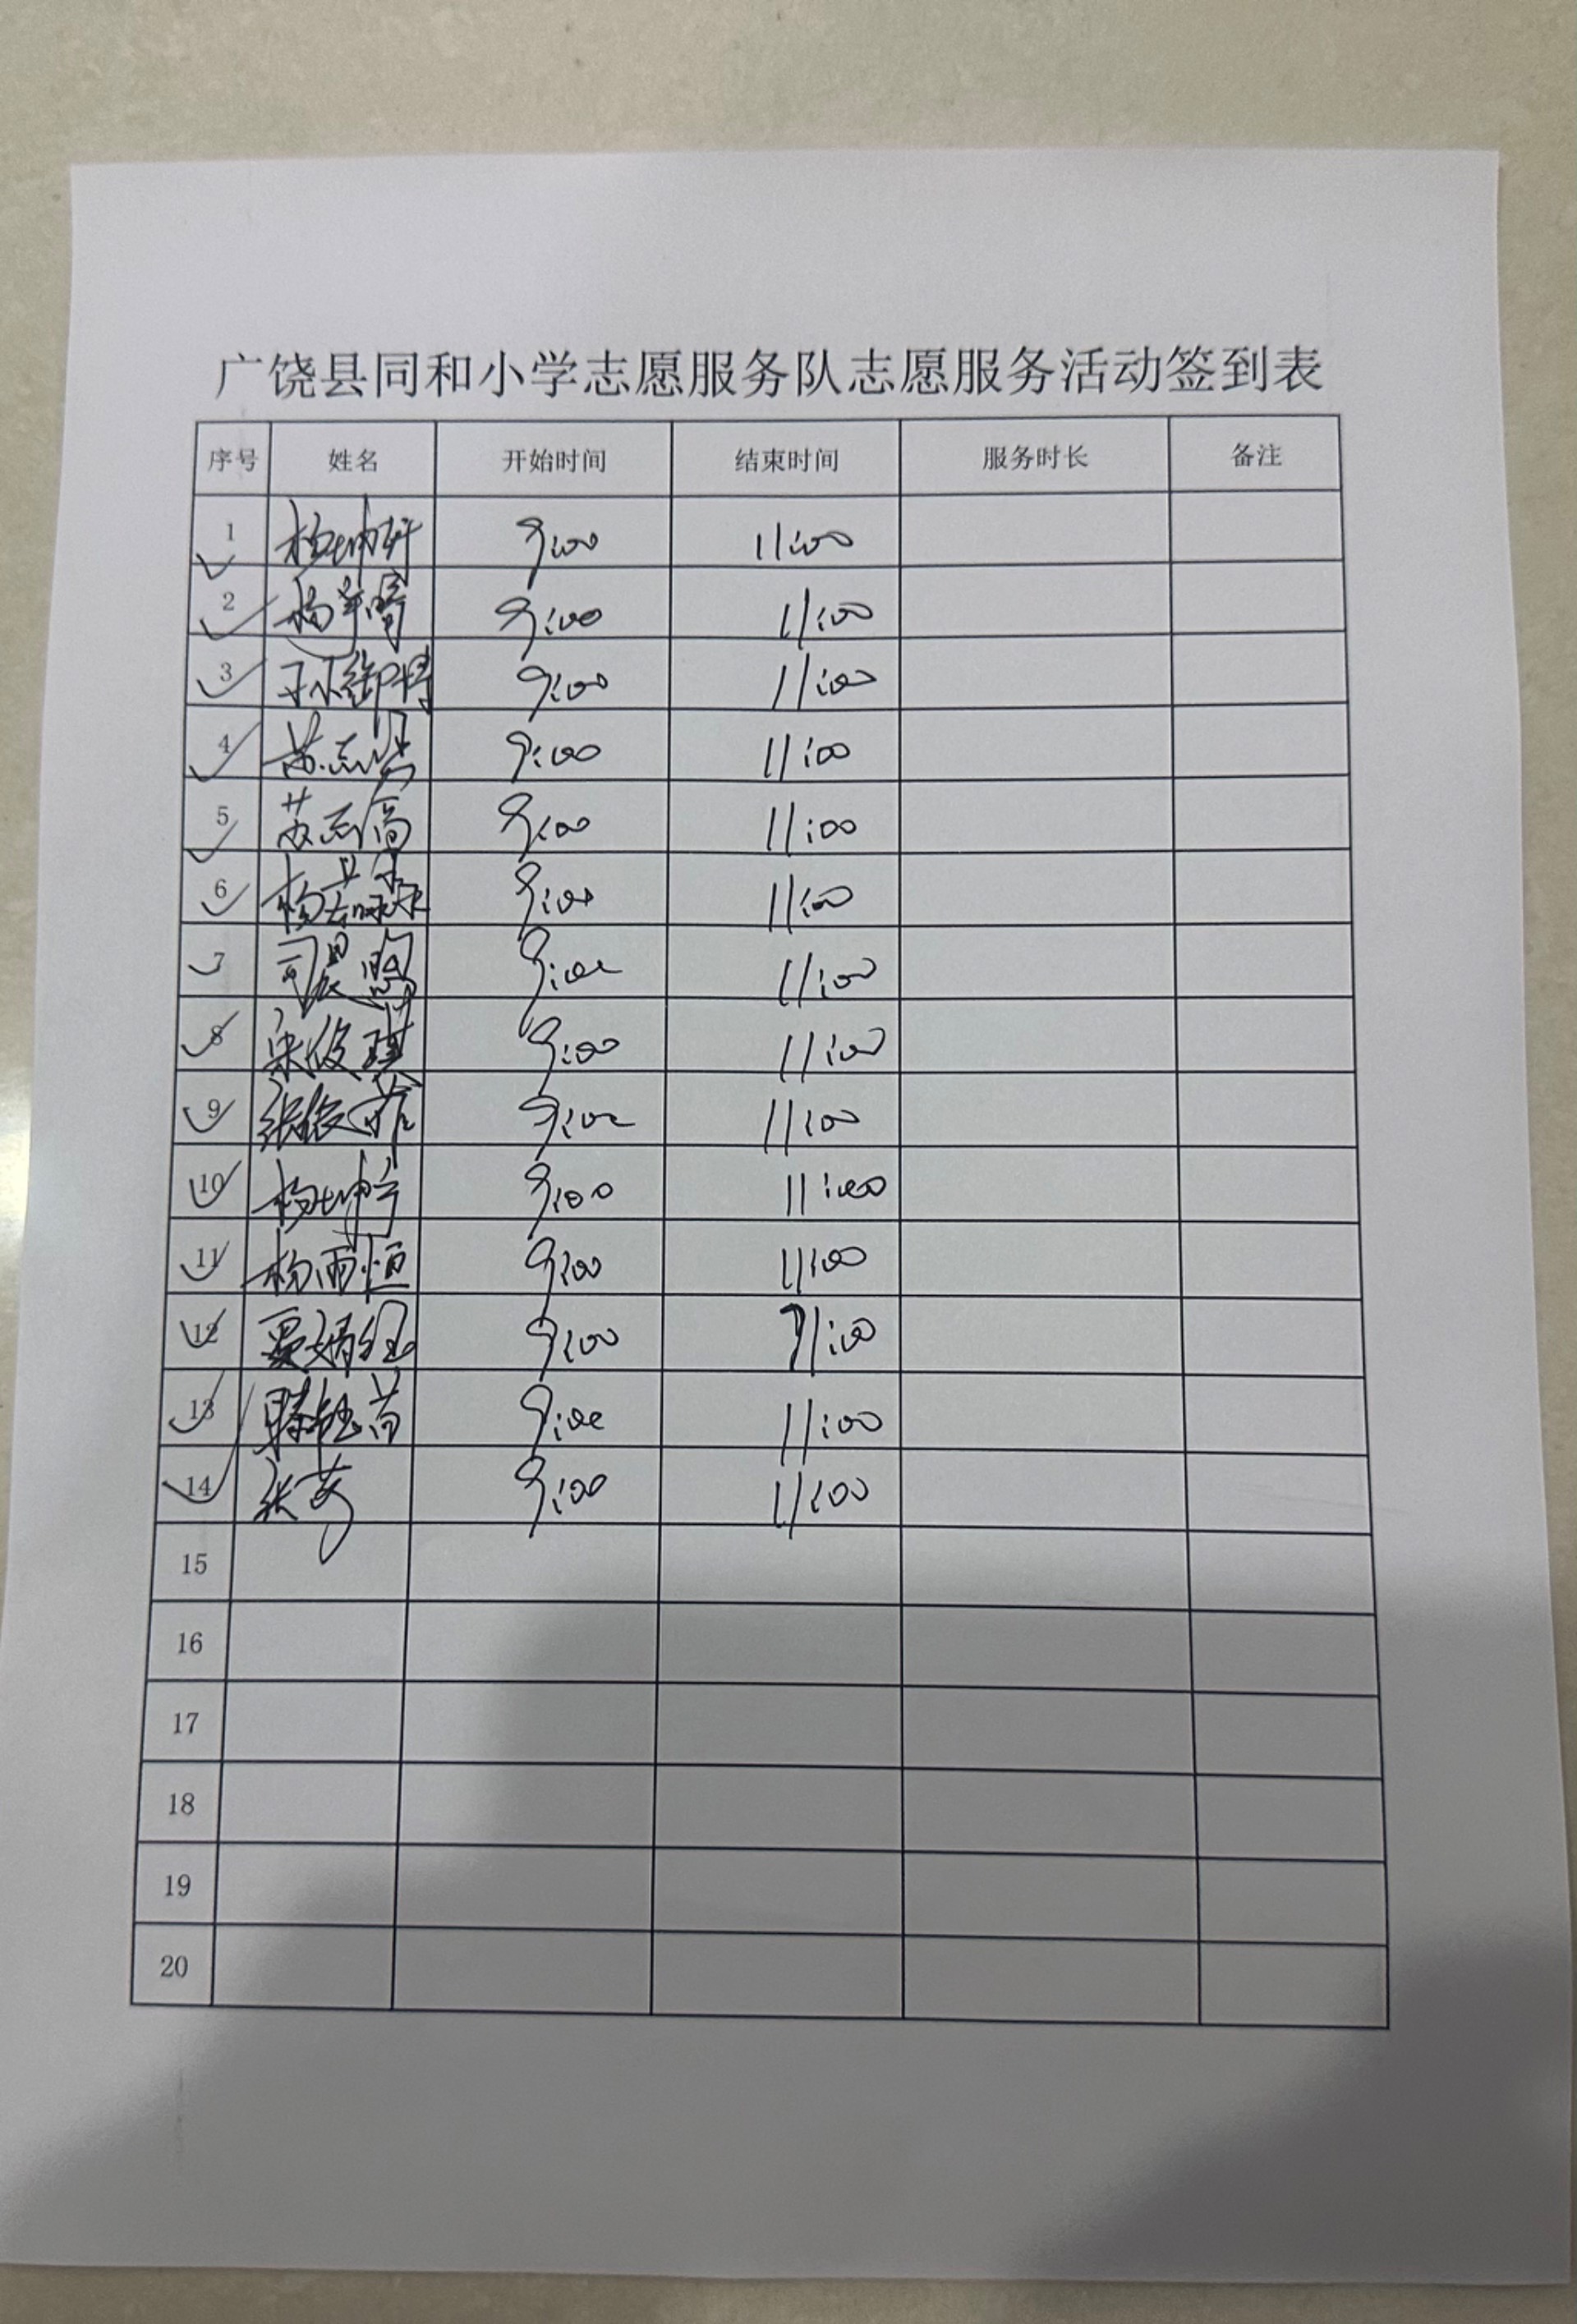 广饶县同和小学志愿服务队志愿服务活动签到表
序号 姓名 开始时间 结束时间 服务时长 备注
1 杨坤轩 9:00 11:00
2 杨 9:00 11:00
3 孙御博 9:00 11:00
4 苏志 9:00 11:00
5 苏志高 9:00 11:00
6 杨 9:00 11:00
7 司晨鸣 9:00 11:00
8 宋俊琪 9:00 11:00
9 张依 9:00 11:00
10 杨坤宇 9:00 11:00
11 杨雨恒 9:00 11:00
12 贾婧钰 9:00 11:00
13 滕钰 9:00 11:00
14 张 9:00 11:00
15
16
17
18
19
20